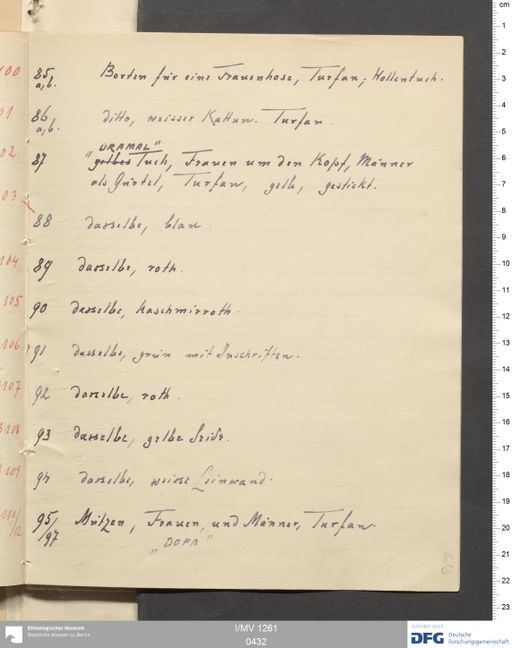 85 a,b. Borten für eine Frauenhose, Turfan; Wollentuch.
86 a,b. ditto, weisser Kattun. Turfan.
"URAMAL"
87 gelbes Tuch, Frauen um den Kopf, Männer
als Gürtel, Turfan, gelb, gestickt.
88 dasselbe, blau.
89 dasselbe, roth.
90 dasselbe, kaschmirroth.
91 dasselbe, grün mit Inschriften.
92 dasselbe, roth.
93 dasselbe, gelbe Seide.
94 dasselbe, weisse Leinwand.
95/97 Mützen, Frauen und Männer, Turfan.
"DOPA"
100
01
02
03
104
105
106
107
108
109
110/12
cm
1
2
3
4
5
6
7
8
9
10
11
12
13
14
15
16
17
18
19
20
21
22
23
Ethnologisches Museum
Staatliche Museen zu Berlin
I/MV 1261
0432
Gefördert durch
DFG Deutsche
Forschungsgemeinschaft